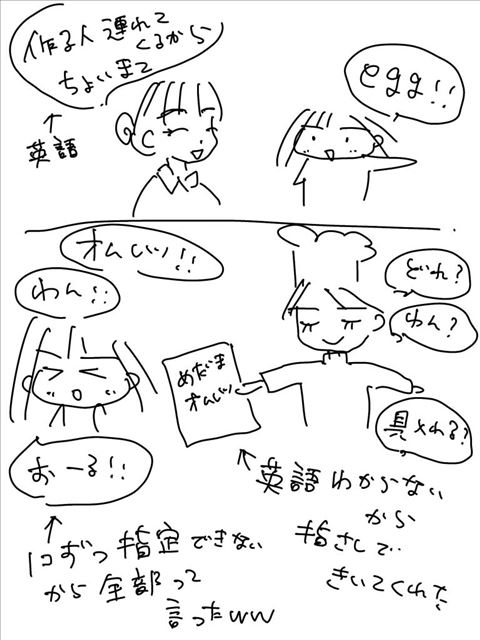 作る人連れて
くるから
ちょいまて
↑
英語
egg!!
オムレツ!!
わん!!
どれ?
わん?
めだま
オムレツ
具入れる?
おーる!!
↑
1コずつ指定できない
から全部って
言ったww
↑
英語わからない
から
指さしで
きいてくれた